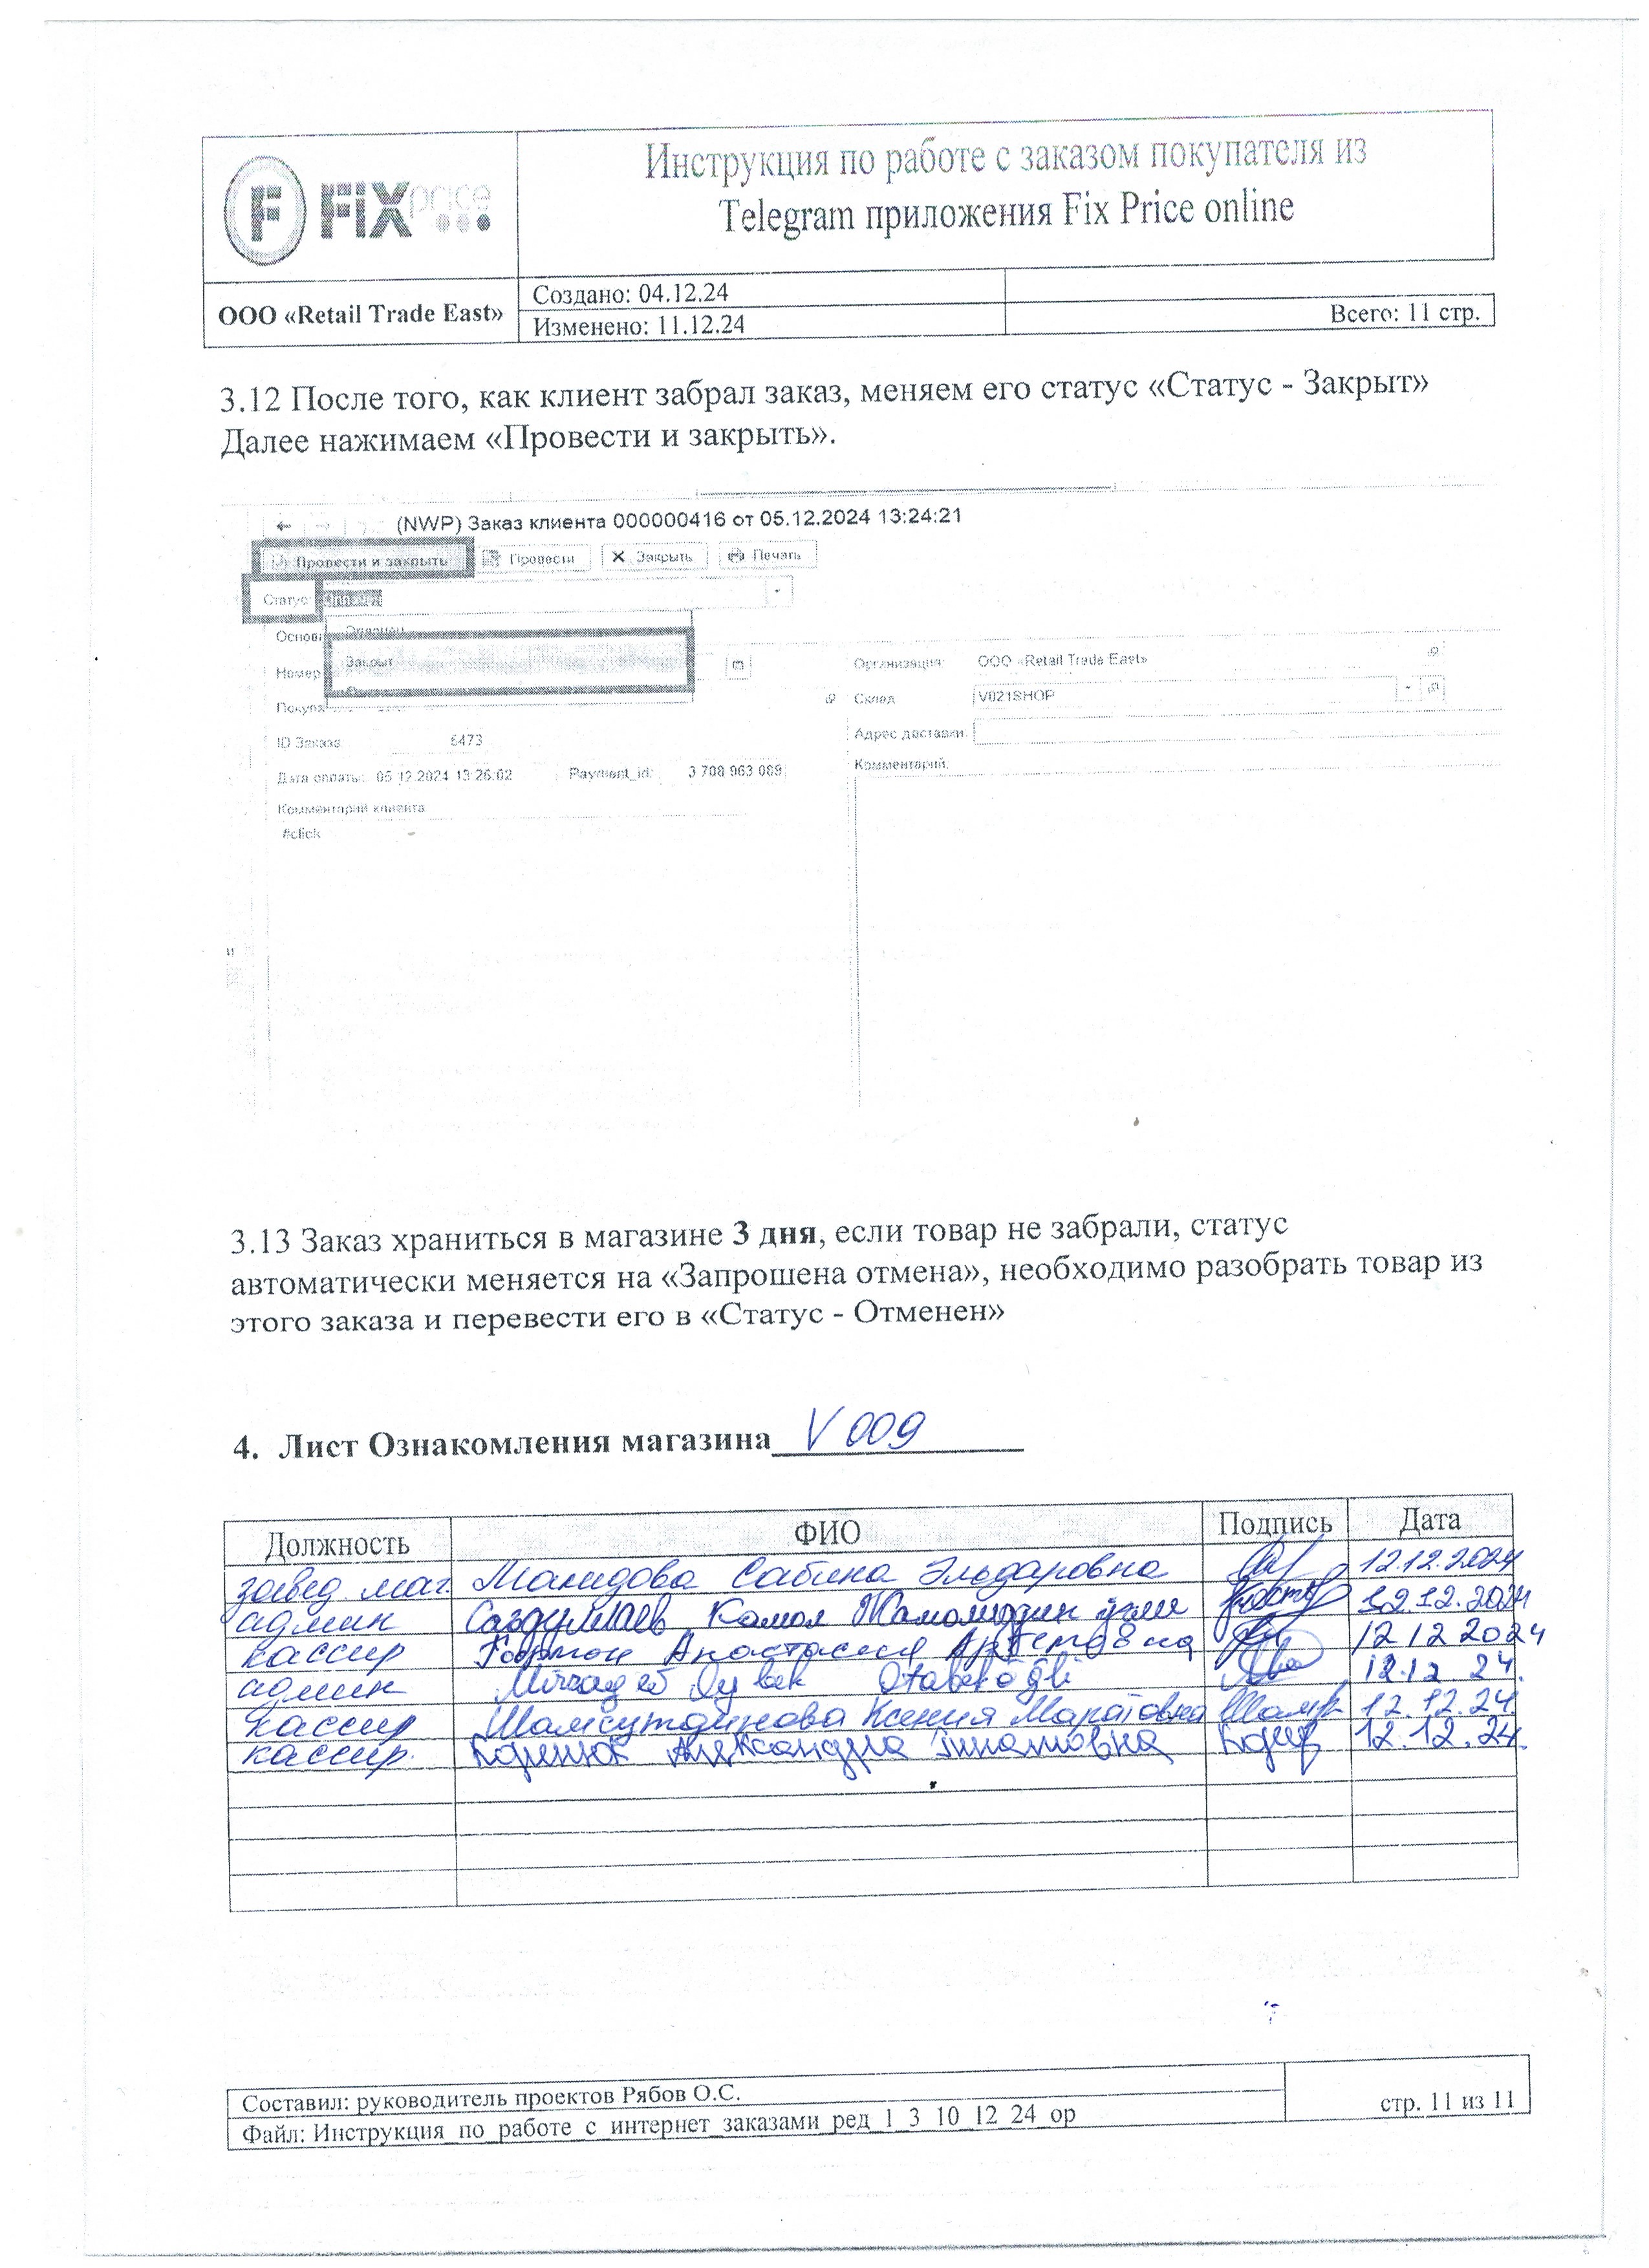 FiXprice
Инструкция по работе с заказом покупателя из
Telegram приложения Fix Price online
ООО «Retail Trade East»
Создано: 04.12.24
Изменено: 11.12.24
Всего: 11 стр.
3.12 После того, как клиент забрал заказ, меняем его статус «Статус - Закрыт»
Далее нажимаем «Провести и закрыть».
(NWP) Заказ клиента 000000416 от 05.12.2024 13:24:21
Провести и закрыть Провести Закрыть Печать
Статус:
Закрыт
Номер
Организация: ООО «Retail Trade East»
Склад V021SHOP
ID Заказа 6473
Адрес доставки:
Дата оплаты: 05.12.2024 13:26:02 Payment_id: 3 708 963 089
Комментарий:
Комментарий клиента
#click
3.13 Заказ храниться в магазине 3 дня, если товар не забрали, статус
автоматически меняется на «Запрошена отмена», необходимо разобрать товар из
этого заказа и перевести его в «Статус - Отменен»
4. Лист Ознакомления магазина V 009
Должность ФИО Подпись Дата
завед. маг. Мамедова Сабина Эльдаровна 12.12.2024
админ Камол 12.12.2024
кассир Анастасия Артемовна 12 12 2024
админ Oybek Otabek o'g'li 12.12 24.
кассир Шамсутдинова Ксения Маратовна 12.12.24.
кассир. Александра 12.12.24.
Составил: руководитель проектов Рябов О.С.
Файл: Инструкция_по_работе_с_интернет_заказами_ред_1_3_10_12_24_ор
стр. 11 из 11